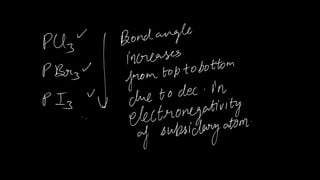 PCl₃ ✓
PBr₃ ✓
PI₃ ✓
Bond angle
increases
from top to bottom
due to dec. in
electronegativity
of subsidiary atom.